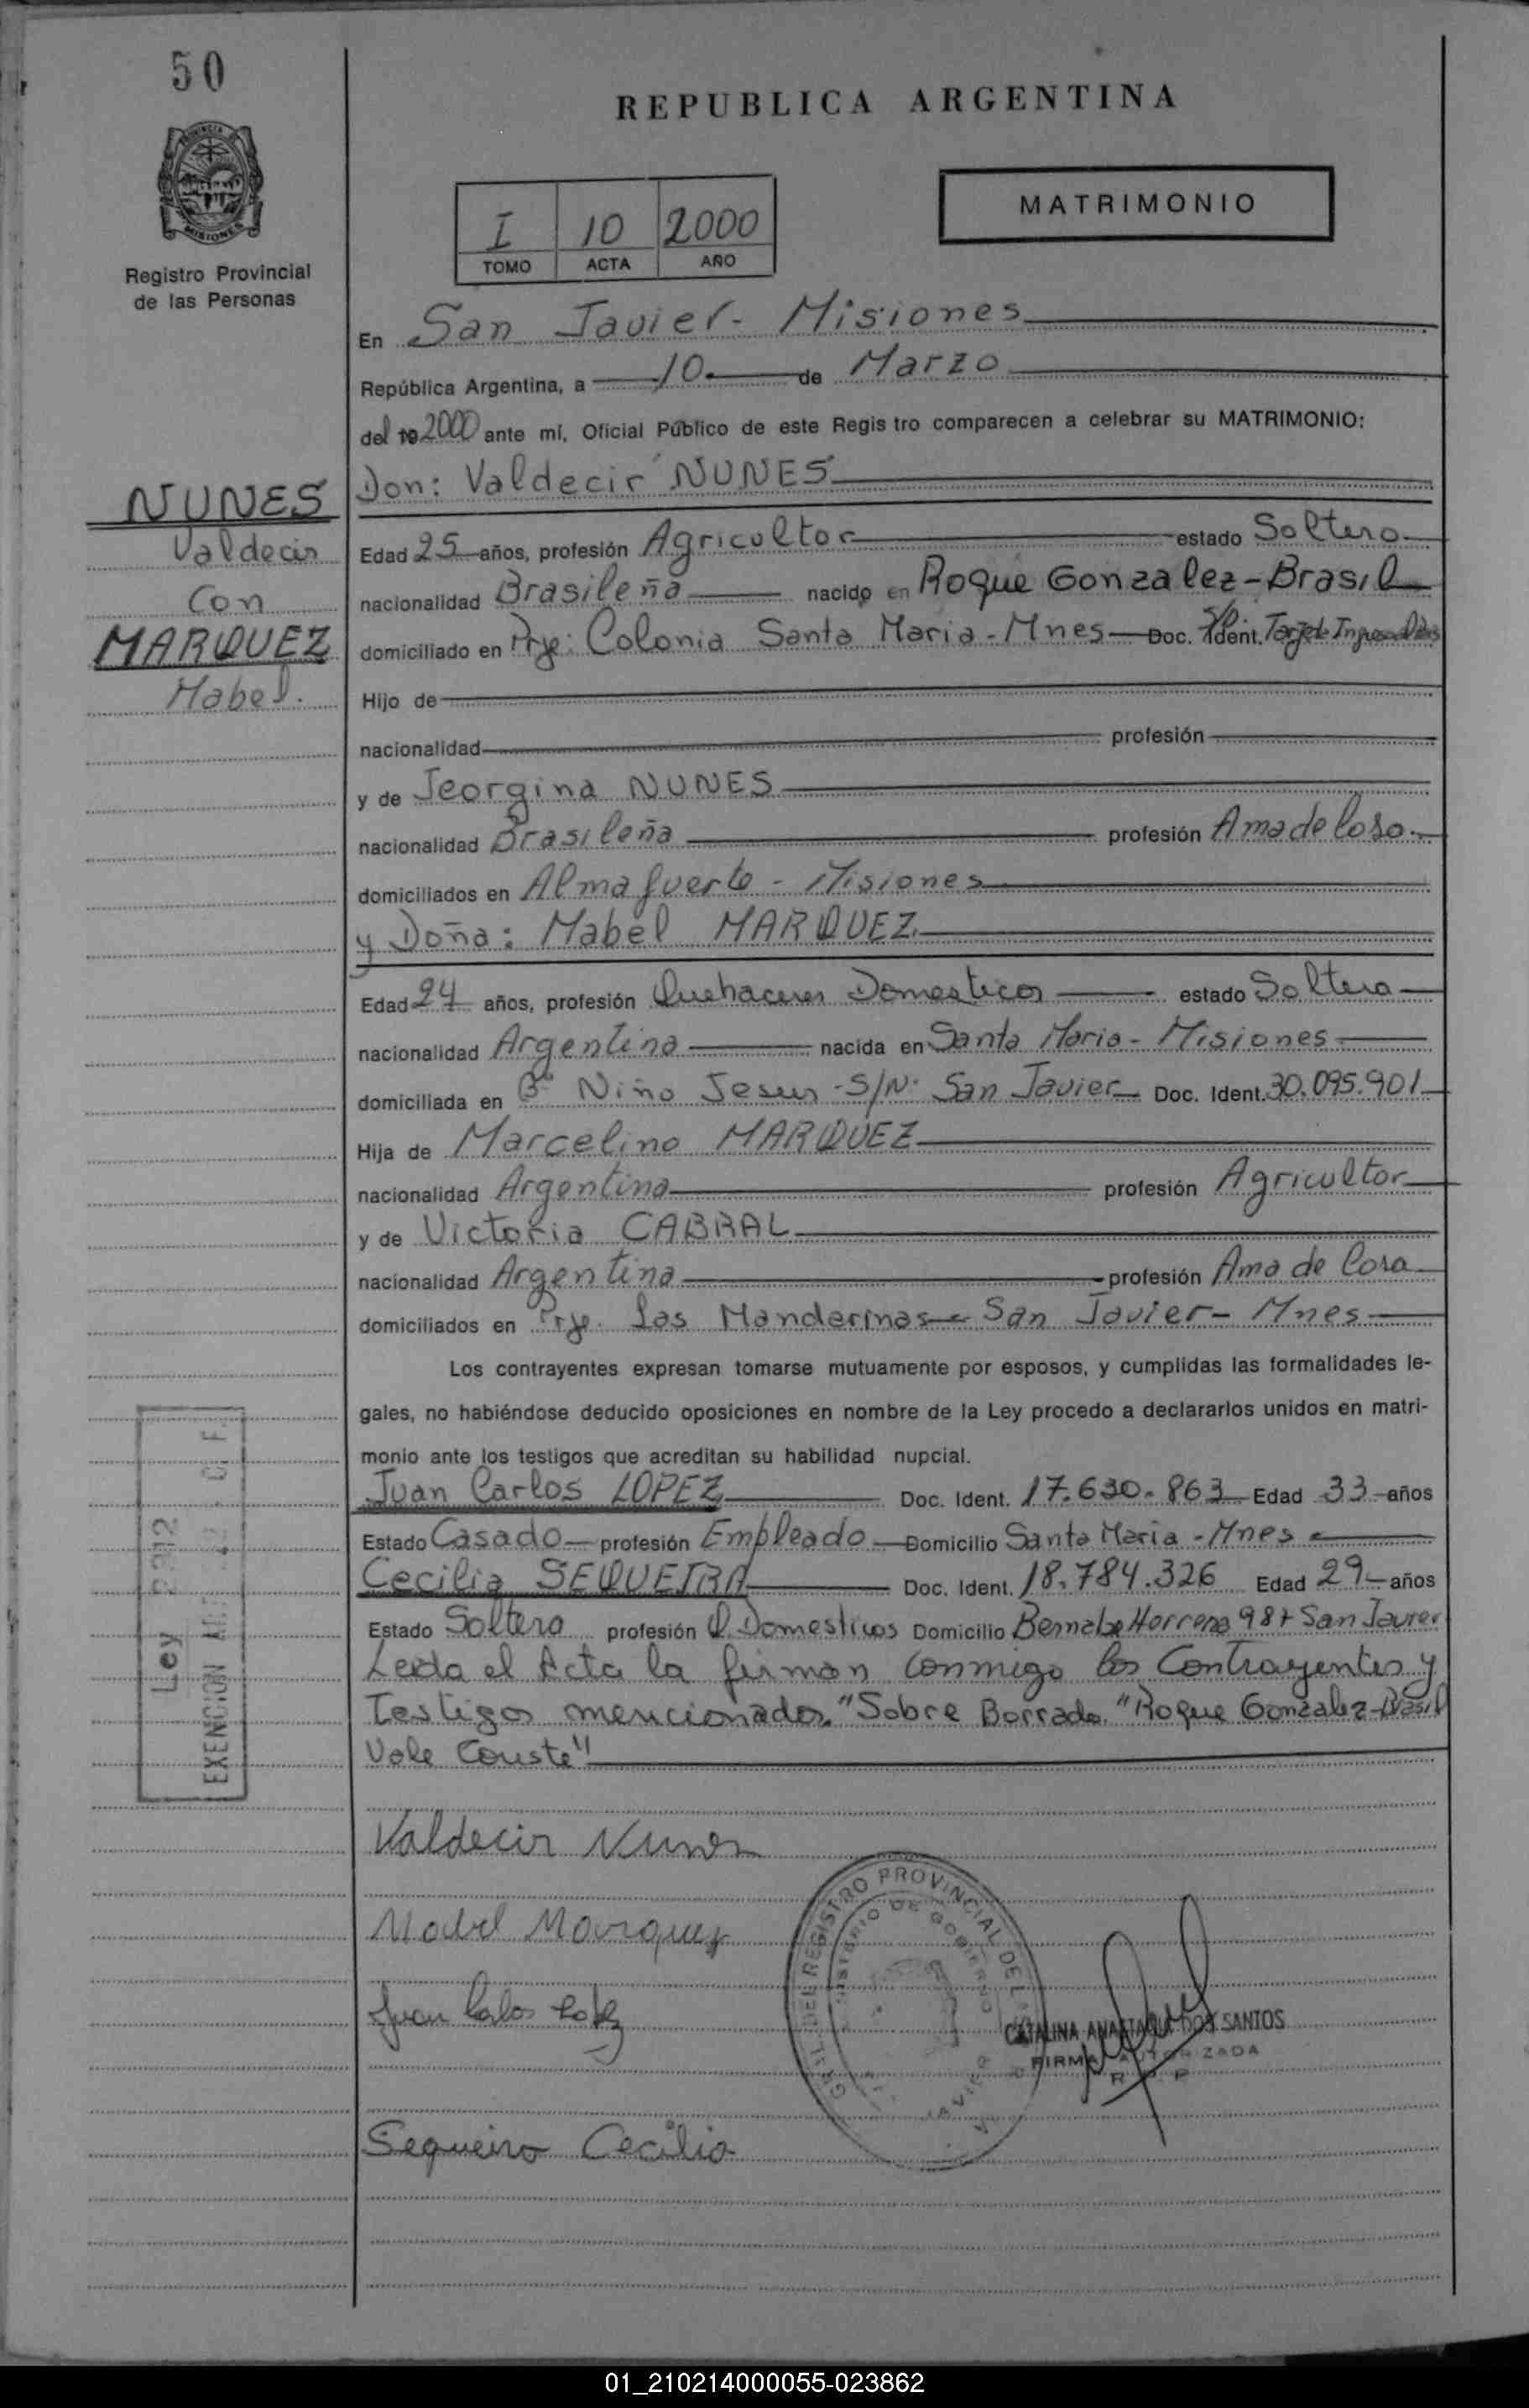 50
REPUBLICA ARGENTINA
MATRIMONIO
I 10 2000
TOMO ACTA AÑO
Registro Provincial
de las Personas
En San Javier - Misiones
República Argentina, a 10 de Marzo
del 19 2000 ante mí, Oficial Público de este Regis tro comparecen a celebrar su MATRIMONIO:
NUNES
Valdecir
Con
MARQUEZ
Mabel.
Don: Valdecir NUNES
Edad 25 años, profesión Agricultor estado Soltero
nacionalidad Brasileña nacido en Roque Gonzalez - Brasil
domiciliado en Prje: Colonia Santa Maria - Mnes Doc. Ident.
Hijo de
nacionalidad profesión
y de Jeorgina NUNES
nacionalidad Brasileña profesión Ama de Casa.
domiciliados en Almafuerte - Misiones
y Doña: Mabel MARQUEZ
Edad 24 años, profesión Quehaceres Domesticos estado Soltera
nacionalidad Argentina nacida en Santa Maria - Misiones
domiciliada en Bº Niño Jesus - S/N. San Javier Doc. Ident. 30.095.901
Hija de Marcelino MARQUEZ
nacionalidad Argentina profesión Agricultor
y de Victoria CABRAL
nacionalidad Argentina profesión Ama de Casa
domiciliados en Prje. Las Mandarinas - San Javier - Mnes
Los contrayentes expresan tomarse mutuamente por esposos, y cumplidas las formalidades le-
gales, no habiéndose deducido oposiciones en nombre de la Ley procedo a declararlos unidos en matri-
monio ante los testigos que acreditan su habilidad nupcial.
Juan Carlos LOPEZ Doc. Ident. 17.630.863 Edad 33 años
Estado Casado profesión Empleado Domicilio Santa Maria - Mnes
Cecilia SEQUEIRA Doc. Ident. 18.784.326 Edad 29 años
Estado Soltera profesión Q. Domesticos Domicilio Bernabe Herrera 987 San Javier
Leida el Acta la firman conmigo los Contrayentes y
Testigos mencionados. "Sobre Borrado. "Roque Gonzalez - Brasil
Vale Conste"
Ley 2312
EXENCION
Valdecir Nunes
Mabel Marquez
Juan Carlos Lopez
Sequeira Cecilia
GRAL. DEL REGISTRO PROVINCIAL DE L
MINISTERIO DE GOBIERNO
CATALINA DOS SANTOS
FIRMA AUTORIZADA
R P P
01_210214000055-023862